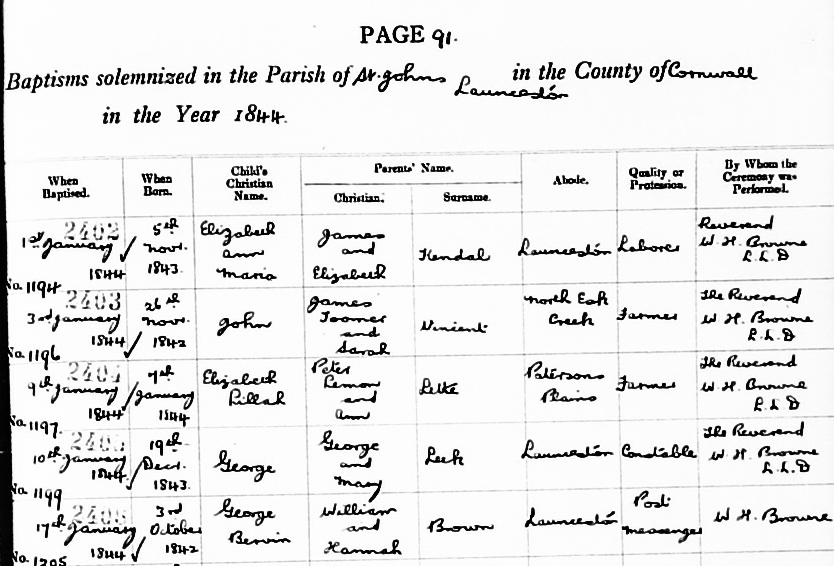 PAGE 91.
Baptisms solemnized in the Parish of St. Johns Launceston in the County of Cornwall
in the Year 1844.
When Baptised. When Born. Child's Christian Name. Parents' Name. Christian. Surname. Abode. Quality or Profession. By Whom the Ceremony was Performed.
2402
1st January 1844 5th Novr. 1843. Elizabeth Ann Maria James and Elizabeth Kendal Launceston Laborer Reverend W. H. Browne L.L.D
No. 1194
2403
3rd January 1844 26th Novr. 1842 John James Toomer and Sarah Vincent North Esk Creek Farmer The Reverend W H. Browne L.L.D
No. 1196
2404
9th January 1844 7th January 1844 Elizabeth Lillah Peter Lemon and Ann Patersons Plains Farmer The Reverend W H. Browne L.L.D
No. 1197.
2405
10th January 1844 19th Decr. 1843. George George and Mary Launceston Constable The Reverend W H. Browne L.L.D
No. 1199
17th January 1844 3rd October 1842 George William and Hannah Brown Launceston Post messenger W H. Browne
No. 1205